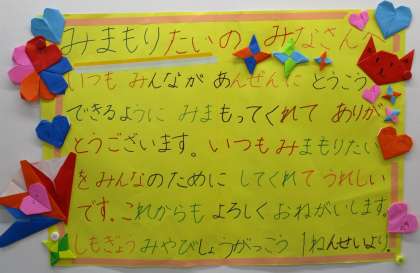 みまもりたいの みなさんへ
いつも みんなが あんぜんに とうこう
できるように みまもってくれて ありが
とうございます。いつもみまもりたい
をみんなのために してくれて うれしい
です。これからも よろしく おねがいします。
しもぎょうみやびしょうがっこう 1ねんせいより。